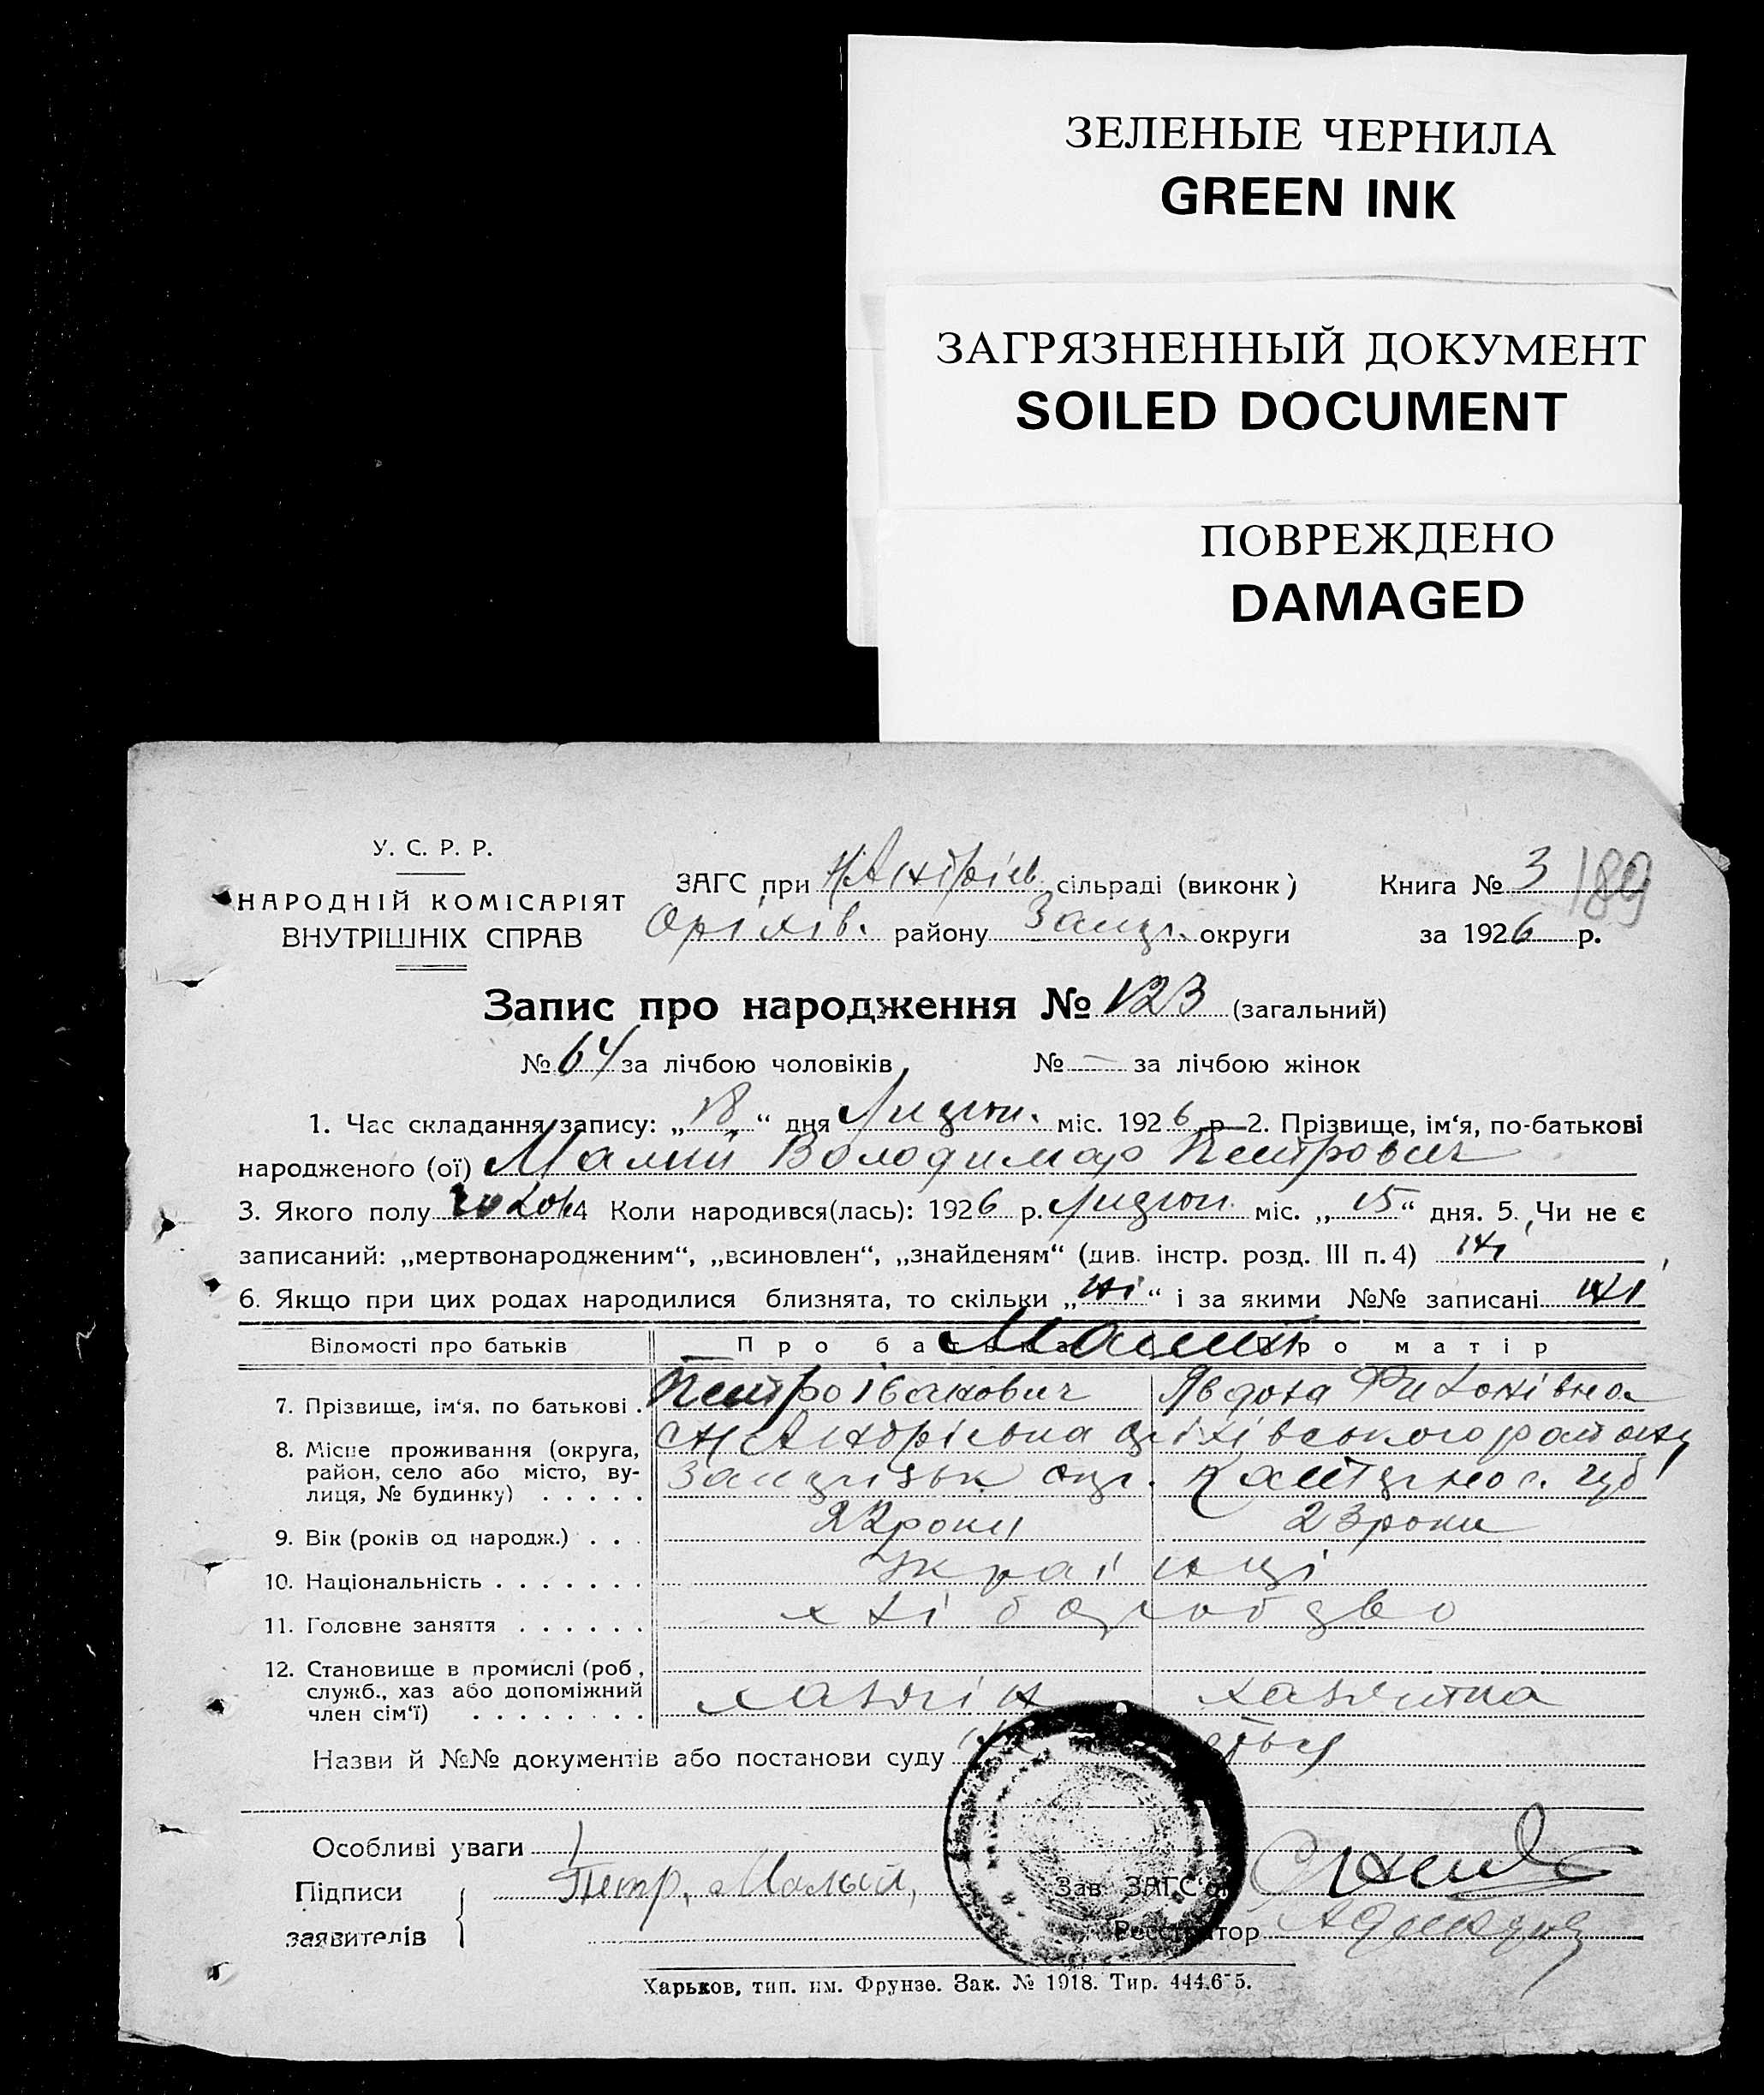 ЗЕЛЕНЫЕ ЧЕРНИЛА
GREEN INK
ЗАГРЯЗНЕННЫЙ ДОКУМЕНТ
SOILED DOCUMENT
ПОВРЕЖДЕНО
DAMAGED
У. С. Р. Р.
НАРОДНІЙ КОМІСАРІЯТ
ВНУТРІШНІХ СПРАВ
ЗАГС при Н/Андріїв сільраді (виконк)
Книга № 3 189
Оріхів. району Запор. округи
за 1926 р.
Запис про народження № 123 (загальний)
№ 64 за лічбою чоловіків № — за лічбою жінок
1. Час складання запису: „18“ дня міс. 1926 р. 2. Прізвище, ім‘я, по-батькові
народженого (ої) Малий Володимар Петрович
3. Якого полу чолов. 4 Коли народився(лась): 1926 р. міс. „15“ дня. 5. Чи не є
записаний: „мертвонародженим“, „всиновлен“, „знайденям“ (див. інстр. розд. III п. 4) ні
6. Якщо при цих родах народилися близнята, то скільки „ні“ і за якими №№ записані ні
Відомості про батьків Про батька Про матір
Малі
7. Прізвище, ім‘я, по батькові . Петро Іванович Явдоха
8. Місце проживання (округа, район, село або місто, вулиця, № будинку) . . . . . району
9. Вік (років од народж.) . . . 22 роки 23 роки
10. Національність . . . . . . . Українці
11. Головне заняття . . . . . . хліборобство
12. Становище в промислі (роб, служб., хаз або допоміжний член сім‘ї) . . . . . . . . хазяїн хазяйка
Назви й №№ документів або постанови суду
Особливі уваги
Підписи
заявителів
Петр, Малый,
Зав. ЗАГС‘ом
Реєстратор
Харьков, тип. им. Фрунзе. Зак. № 1918. Тир.